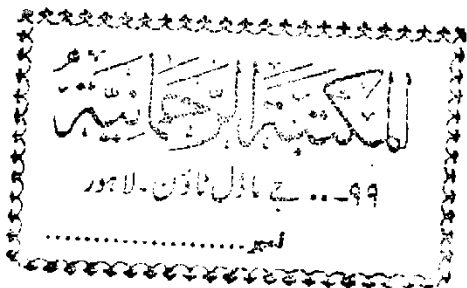 المكتبة الرحمانية
۹۹۔۔۔ جے ماڈل ٹاؤن ۔ لاہور
نمبر......................